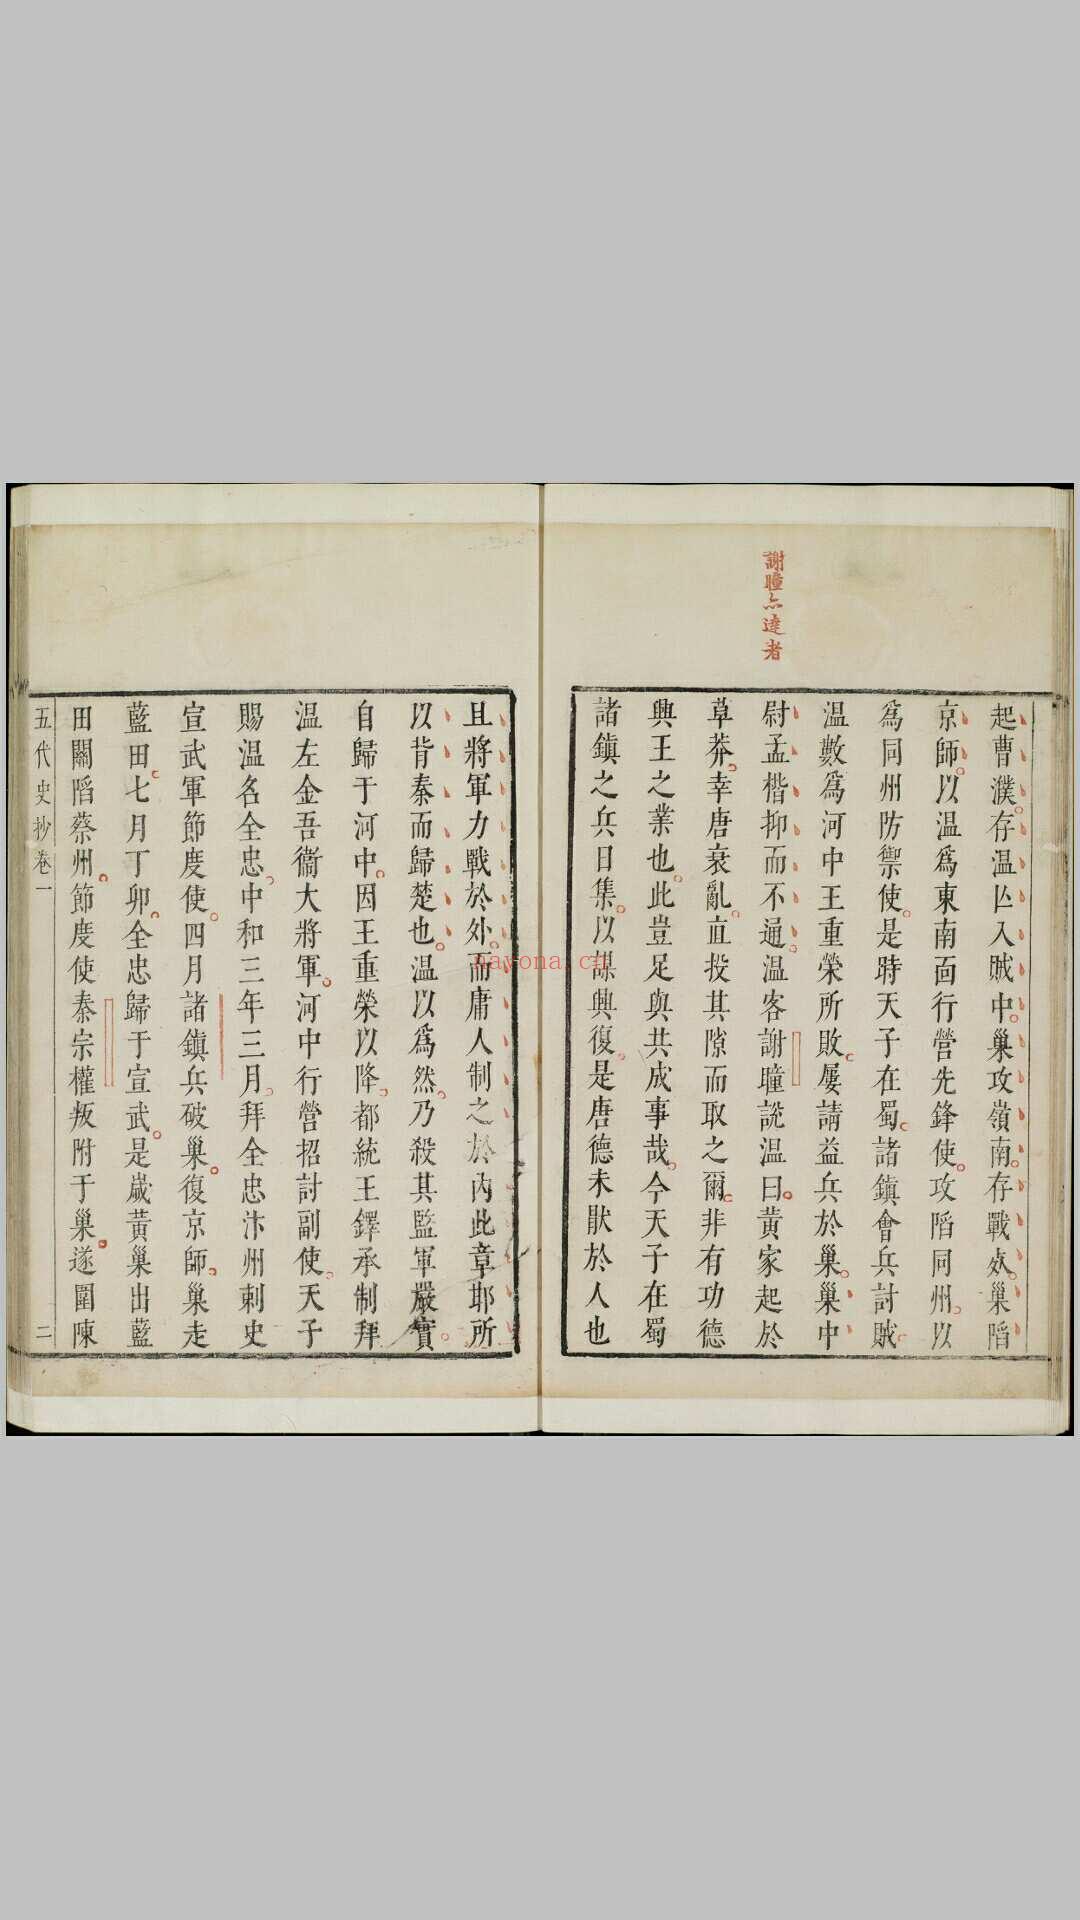 謝瞳亦達者
起曹濮存温亡入賊中巢攻嶺南存戰死巢陷
京師以温爲東南面行營先鋒使攻陷同州以
爲同州防禦使是時天子在蜀諸鎮會兵討賊
温數爲河中王重榮所敗屢請益兵於巢巢中
尉孟楷抑而不通温客謝瞳說温曰黄家起於
草莽幸唐衰亂直投其隙而取之爾非有功德
興王之業也此豈足與共成事哉今天子在蜀
諸鎮之兵日集以謀興復是唐德未猒於人也
且將軍力戰於外而庸人制之於内此章邯所
以背秦而歸楚也温以爲然乃殺其監軍嚴實
自歸于河中因王重榮以降都統王鐸承制拜
温左金吾衞大將軍河中行營招討副使天子
賜温名全忠中和三年三月拜全忠汴州刺史
宣武軍節度使四月諸鎮兵破巢復京師巢走
藍田七月丁卯全忠歸于宣武是歲黄巢出藍
田關陷蔡州節度使秦宗權叛附于巢遂圍陳
五代史抄卷一
二
nayona.cn